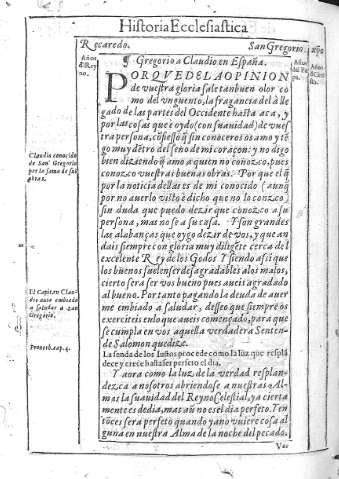 Historia Ecclesiastica
Recaredo.
San Gregorio.
Años
del Rey
no.
Años
del Pa
pa.
Años
¶ Gregorio a Claudio en España.
PORQVE DE LA OPINION
de vuestra gloria sale tan buen olor co
mo del vnguento, la fragancia del à lle
gado de las partes del Occidente hasta aca, y
por las cosas que è oydo (con suauidad) de vues
tra persona, confiesso que sin conoceros os amo y tē
go muy dētro del seno de mi coraçon: y no digo
bien diziendo que amo a quien no conozco, pues
conozco vuestras buenas obras. Por que el que
por la noticia dellas es de mi conocido (aunque
por no auerlo visto è dicho que no lo conozco)
sin duda que puedo dezir que conozco a su
persona, mas no se a su casa. Y son grandes
las alabanças que oygo dezir de vos, y que an
dais siempre con gloria muy diligēte cerca del
excelente Rey de los Godos. Y siendo assi que
los buenos suelen ser desagradables a los malos,
cierto sera ser vos bueno pues aueis agradado
al bueno. Por tanto pagando la deuda de auer
me embiado a saludar, desseo que siempre os
exerciteis en lo que aueis començado, para que
se cumpla en vos aquella verdadera Senten-
de Salomon que dize.
La senda de los Iustos procede como la luz que respla
dece y crece hasta ser perfeto el dia.
Y aora como la luz de la verdad resplan-
dezca a nosotros abriendose a nuestras Al-
mas la suauidad del Reyno Celestial, ya cierta
mente es de dia, mas aū no es el dia perfeto. Ten
tōces sera perfeto quando ya no viere cosa al
guna en nuestra Alma de la noche del pecado.
Claudio conocido
de San Gregorio
por la fama de su
bras.
El Capitan Clau
dio auia embiado
a saludar a san
Gregorio.
Prouerb. cap. 4.